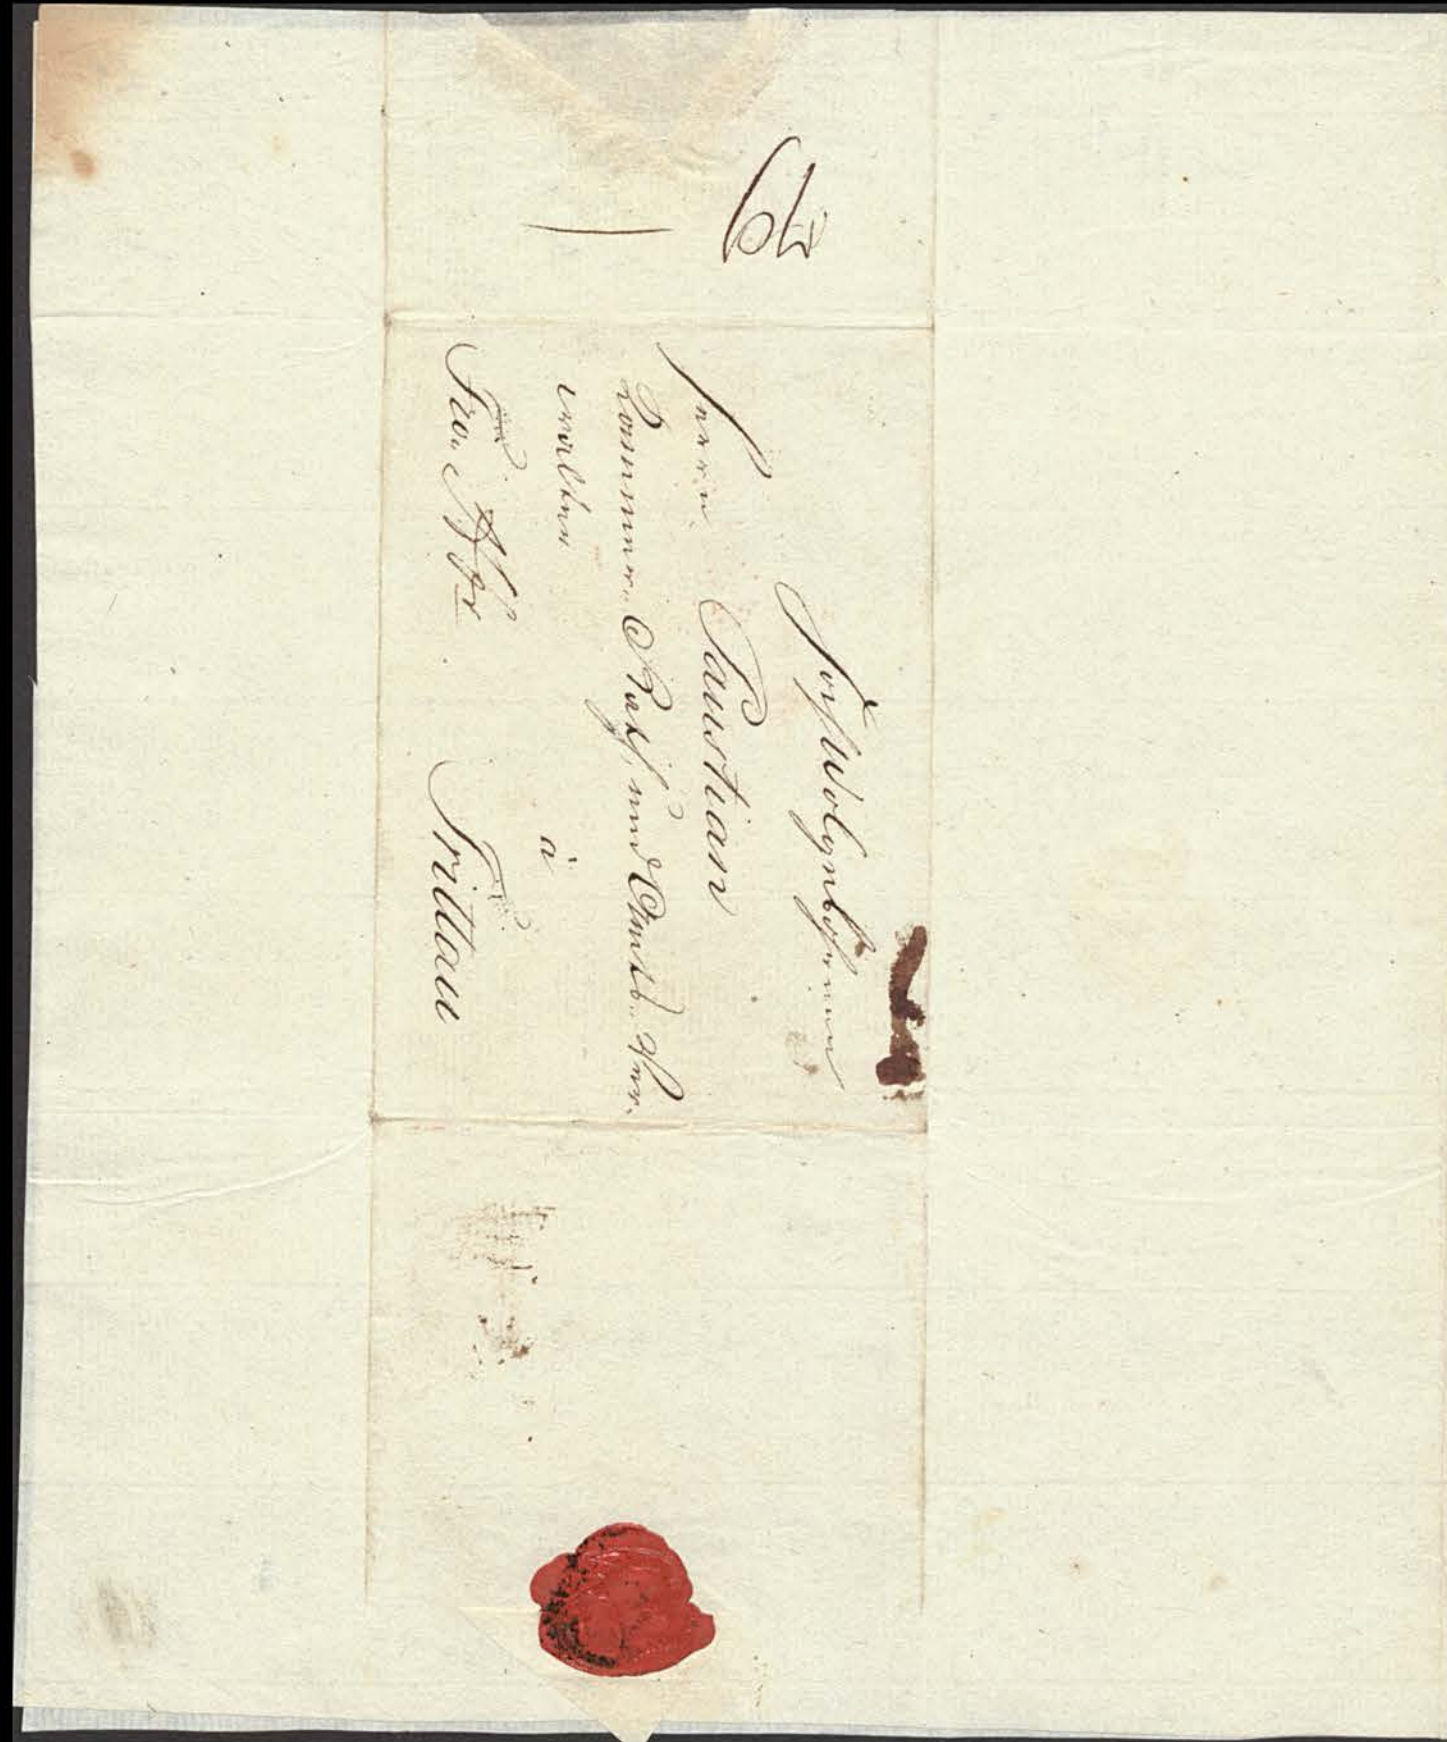 Hochwolgebohrnen
Herrn Paustian
Kammer-Rath und Amts-Ver-
walter
à
Fro. Trittau